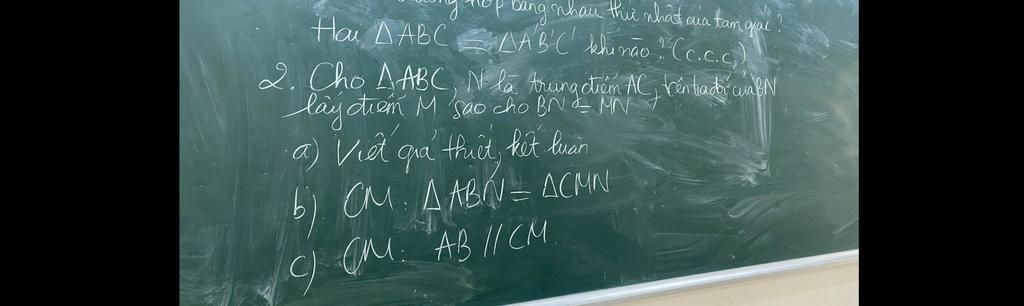 hợp bằng nhau thứ nhất của tam giác?
Hai ΔABC = ΔA'B'C' khi nào? (c.c.c)
2. Cho ΔABC, N là trung điểm AC, trên tia đối của BN
lấy điểm M sao cho BN = MN
a) Viết giả thiết, kết luận
b). CM: ΔABN = ΔCMN
c) CM: AB // CM.